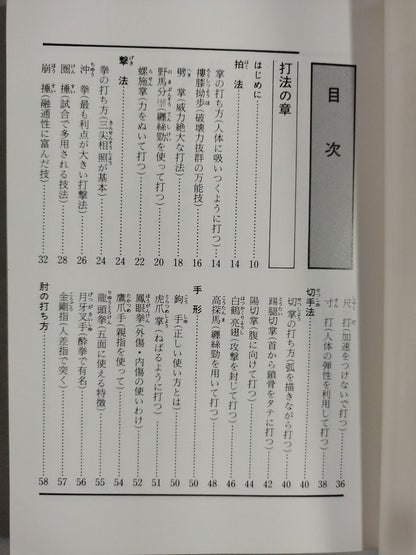 目次
打法の章
はじめに……10
拍法……14
掌の打ち方(人体に吸いつくように打つ)……14
摟膝拗歩(破壊力抜群の万能技)……16
劈掌(威力絶大な打法)……18
野馬分鬃(纏絲勁を使って打つ)……20
螺施掌(力をぬいて打つ)……22
撃法……24
拳の打ち方(三尖相照が基本)……24
沖拳(最も利点が大きい打撃法)……26
圏捶(試合で多用される技法)……28
崩捶(融通性に富んだ技)……32
尺打(加速をつけないで打つ)……36
寸打(人体の弾性を利用して打つ)……38
切手法……40
切掌の打ち方(弧を描きながら打つ)……40
踢腿切掌(首から鎖骨をタテに打つ)……42
陽切掌(腹に向けて打つ)……44
白鶴亮翅(攻撃を封じて打つ)……46
高探馬(纏絲勁を用いて打つ)……48
手形……50
鉤手(正しい使い方とは)……50
虎爪掌(ねばるように打つ)……51
鳳眼拳(外傷・内傷の使いわけ)……52
鷹爪手(親指を使って)……54
龍頭拳(五面に使える特徴)……55
月牙叉手(酔拳で有名)……56
金剛指(人差指で突く)……57
肘の打ち方……58